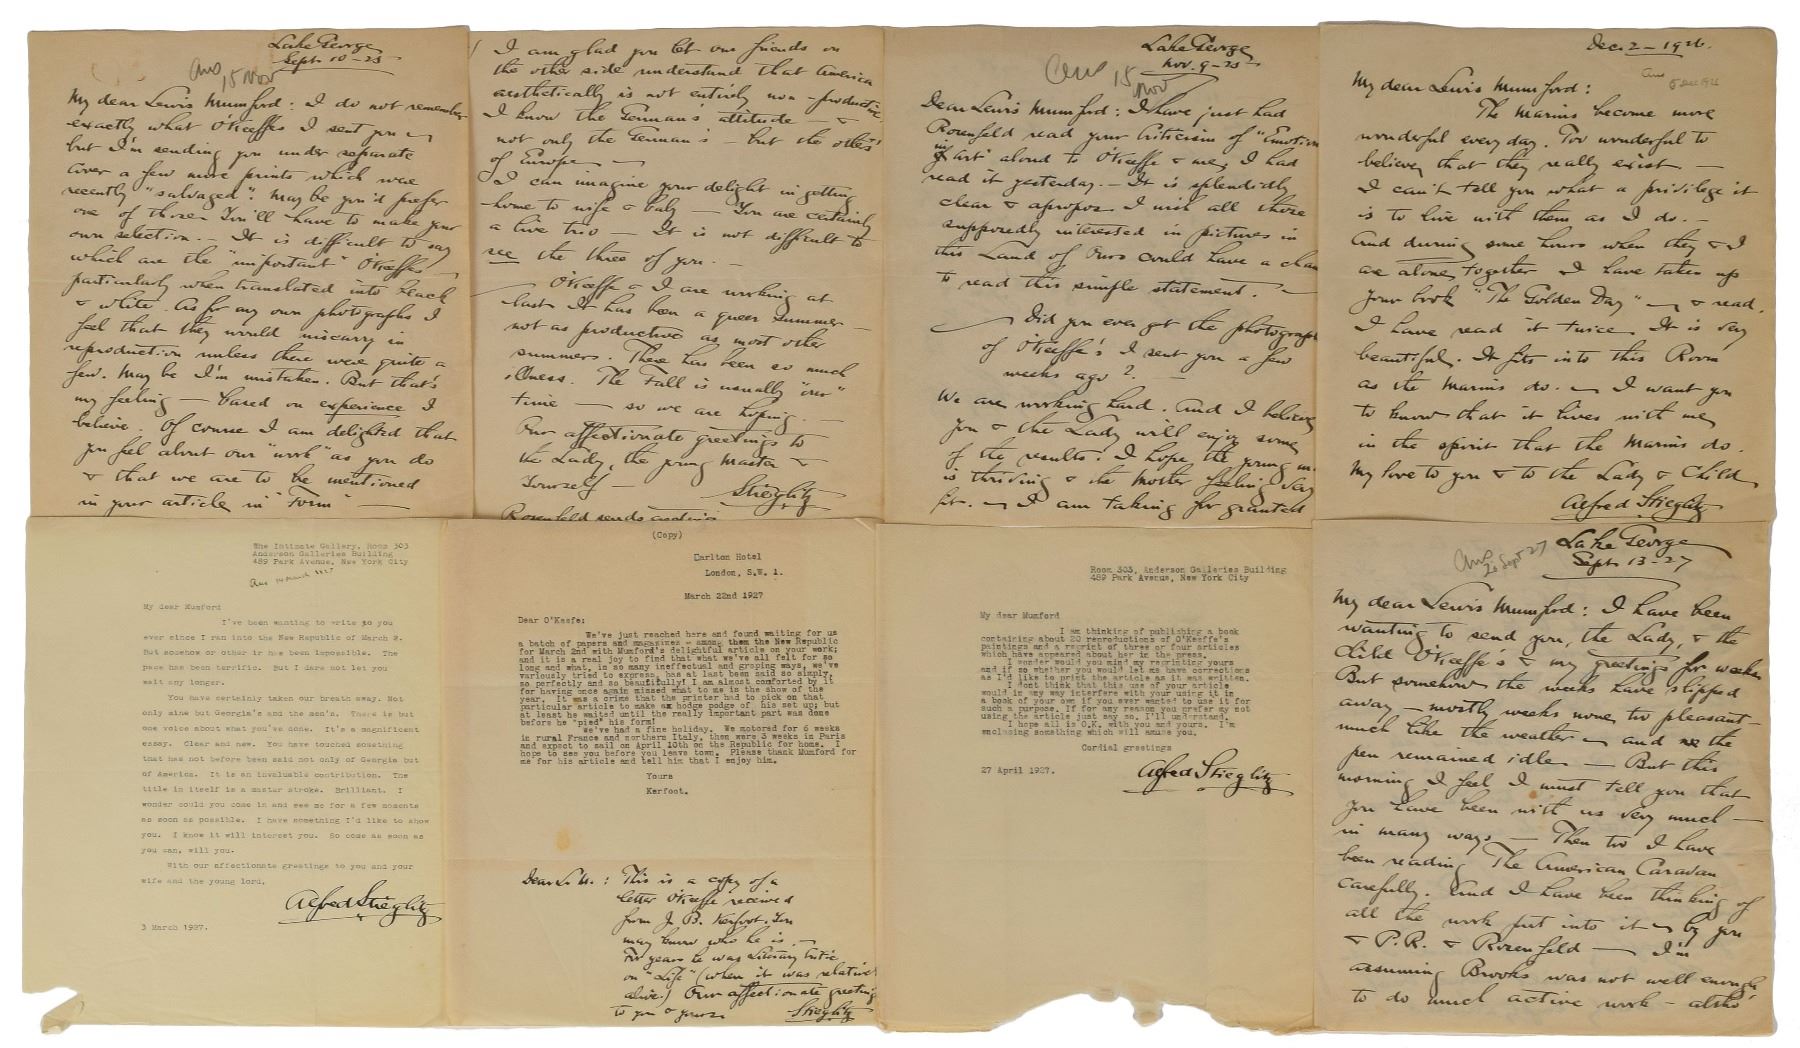 Lake George
Sept. 10-25
Ans 15 Nov
My dear Lewis Mumford: I do not remember
exactly what O'Keeffes I sent you —
but I'm sending you under separate
cover a few more prints which were
recently "salvaged". May be you'd prefer
one of those. You'll have to make your
own selection. — It is difficult to say
which are the "important" O'Keeffes —
particularly when translated into black
& white. As for my own photographs I
feel that they would miscarry in
reproduction unless there were quite a
few. May be I'm mistaken. But that's
my feeling — based on experience I
believe. Of course I am delighted that
you feel about our "work" as you do
& that we are to be mentioned
in your article in "Form" —
I am glad you let our friends on
the other side understand that America
aesthetically is not entirely non-productive.
I know the German's attitude — &
not only the German's — but the others
of Europe —
I can imagine your delight in getting
home to wife & baby — You are certainly
a live trio — It is not difficult to
see the three of you. —
O'Keeffe & I are working at
last. It has been a queer summer —
not as productive as most other
summers. There has been so much
illness. The Fall is usually "our"
time — so we are hoping —
Our affectionate greetings to
the Lady, the young Master &
Yourself —
Stieglitz
Rosenfeld sends greetings
Lake George
Nov. 9-25
Ans 15 Nov
Dear Lewis Mumford: I have just had
Rosenfeld read your Criticism of "Emotion
in Art" aloud to O'Keeffe & me. I had
read it yesterday. — It is splendidly
clear & apropos. I wish all those
supposedly interested in pictures in
this Land of Ours could have a chance
to read this simple statement. —
Did you ever get the photograph
of O'Keeffe's I sent you a few
weeks ago? —
We are working hard. And I believe
you & the Lady will enjoy some
of the results. I hope the young
is thriving & the Mother feeling very
fit. — I am taking for granted
Dec. 2 — 1926.
Ans 5 Dec 1926
My dear Lewis Mumford:
The Marins become more
wonderful every day. Too wonderful to
believe that they really exist —
I can't tell you what a privilege it
is to live with them as I do. —
And during some hours when they & I
are alone together I have taken up
your book "The Golden Day" — & read.
I have read it twice. It is very
beautiful. It fits into this Room
as the Marins do. — I want you
to know that it lives with me
in the spirit that the Marins do.
My love to you & to the Lady & Child
Alfred Stieglitz
The Intimate Gallery, Room 303
Anderson Galleries Building
489 Park Avenue, New York City
Ans 14 March 1927
My dear Mumford
I've been wanting to write to you
ever since I ran into the New Republic of March 2.
But somehow or other it has been impossible. The
pace has been terrific. But I dare not let you
wait any longer.
You have certainly taken our breath away. Not
only mine but Georgia's and the men's. There is but
one voice about what you've done. It's a magnificent
essay. Clear and new. You have touched something
that has not before been said not only of Georgia but
of America. It is an invaluable contribution. The
title in itself is a master stroke. Brilliant. I
wonder could you come in and see me for a few moments
as soon as possible. I have something I'd like to show
you. I know it will interest you. So come as soon as
you can, will you.
With our affectionate greetings to you and your
wife and the young lord,
Alfred Stieglitz
3 March 1927.
(Copy)
Carlton Hotel
London, S.W. 1.
March 22nd 1927
Dear O'Keefe:
We've just reached here and found waiting for us
a batch of papers and magazines - among them the New Republic
for March 2nd with Mumford's delightful article on your work;
and it is a real joy to find that what we've all felt for so
long and what, in so many ineffectual and groping ways, we've
variously tried to express, has at last been said so simply,
so perfectly and so beautifully! I am almost comforted by it
for having once again missed what to me is the show of the
year. It was a crime that the printer had to pick on that
particular article to make an hodge podge of his set up; but
at least he waited until the really important part was done
before he "pied" his form!
We've had a fine holiday. We motored for 6 weeks
in rural France and northern Italy, then were 3 weeks in Paris
and expect to sail on April 10th on the Republic for home. I
hope to see you before you leave town. Please thank Mumford for
me for his article and tell him that I enjoy him.
Yours
Kerfoot.
Dear L. M.: This is a copy of a
letter O'Keeffe received
from J. B. Kerfoot. You
may know who he is. —
For years he was Literary Critic
on "Life" (when it was relatively
alive.) Our affectionate greetings
to you & yours
Stieglitz
Room 303, Anderson Galleries Building
489 Park Avenue, New York City
My dear Mumford
I am thinking of publishing a book
containing about 20 reproductions of O'Keeffe's
paintings and a reprint of three or four articles
which have appeared about her in the press.
I wonder would you mind my reprinting yours
and if so whether you would let me have corrections
as I'd like to print the article as it was written.
I dont think that this use of your article
would in any way interfere with your using it in
a book of your own if you ever wanted to use it for
such a purpose. If for any reason you prefer my not
using the article just say so. I'll understand.
I hope all is O.K. with you and yours. I'm
enclosing something which will amuse you.
Cordial greetings
Alfred Stieglitz
27 April 1927.
Lake George
Sept. 13-27
Ans 20 Sept 27
My dear Lewis Mumford: I have been
wanting to send you, the Lady, & the
Child O'Keeffe's & my greetings for weeks
But somehow the weeks have slipped
away — mostly weeks none too pleasant —
much like the weather — and the
pen remained idle — But this
morning I feel I must tell you that
you have been with us very much —
in many ways — Then too I have
been reading The American Caravan
carefully. And I have been thinking of
all the work put into it — by you
& P.R. & Rosenfeld — I'm
assuming Brooks was not well enough
to do much active work — altho'